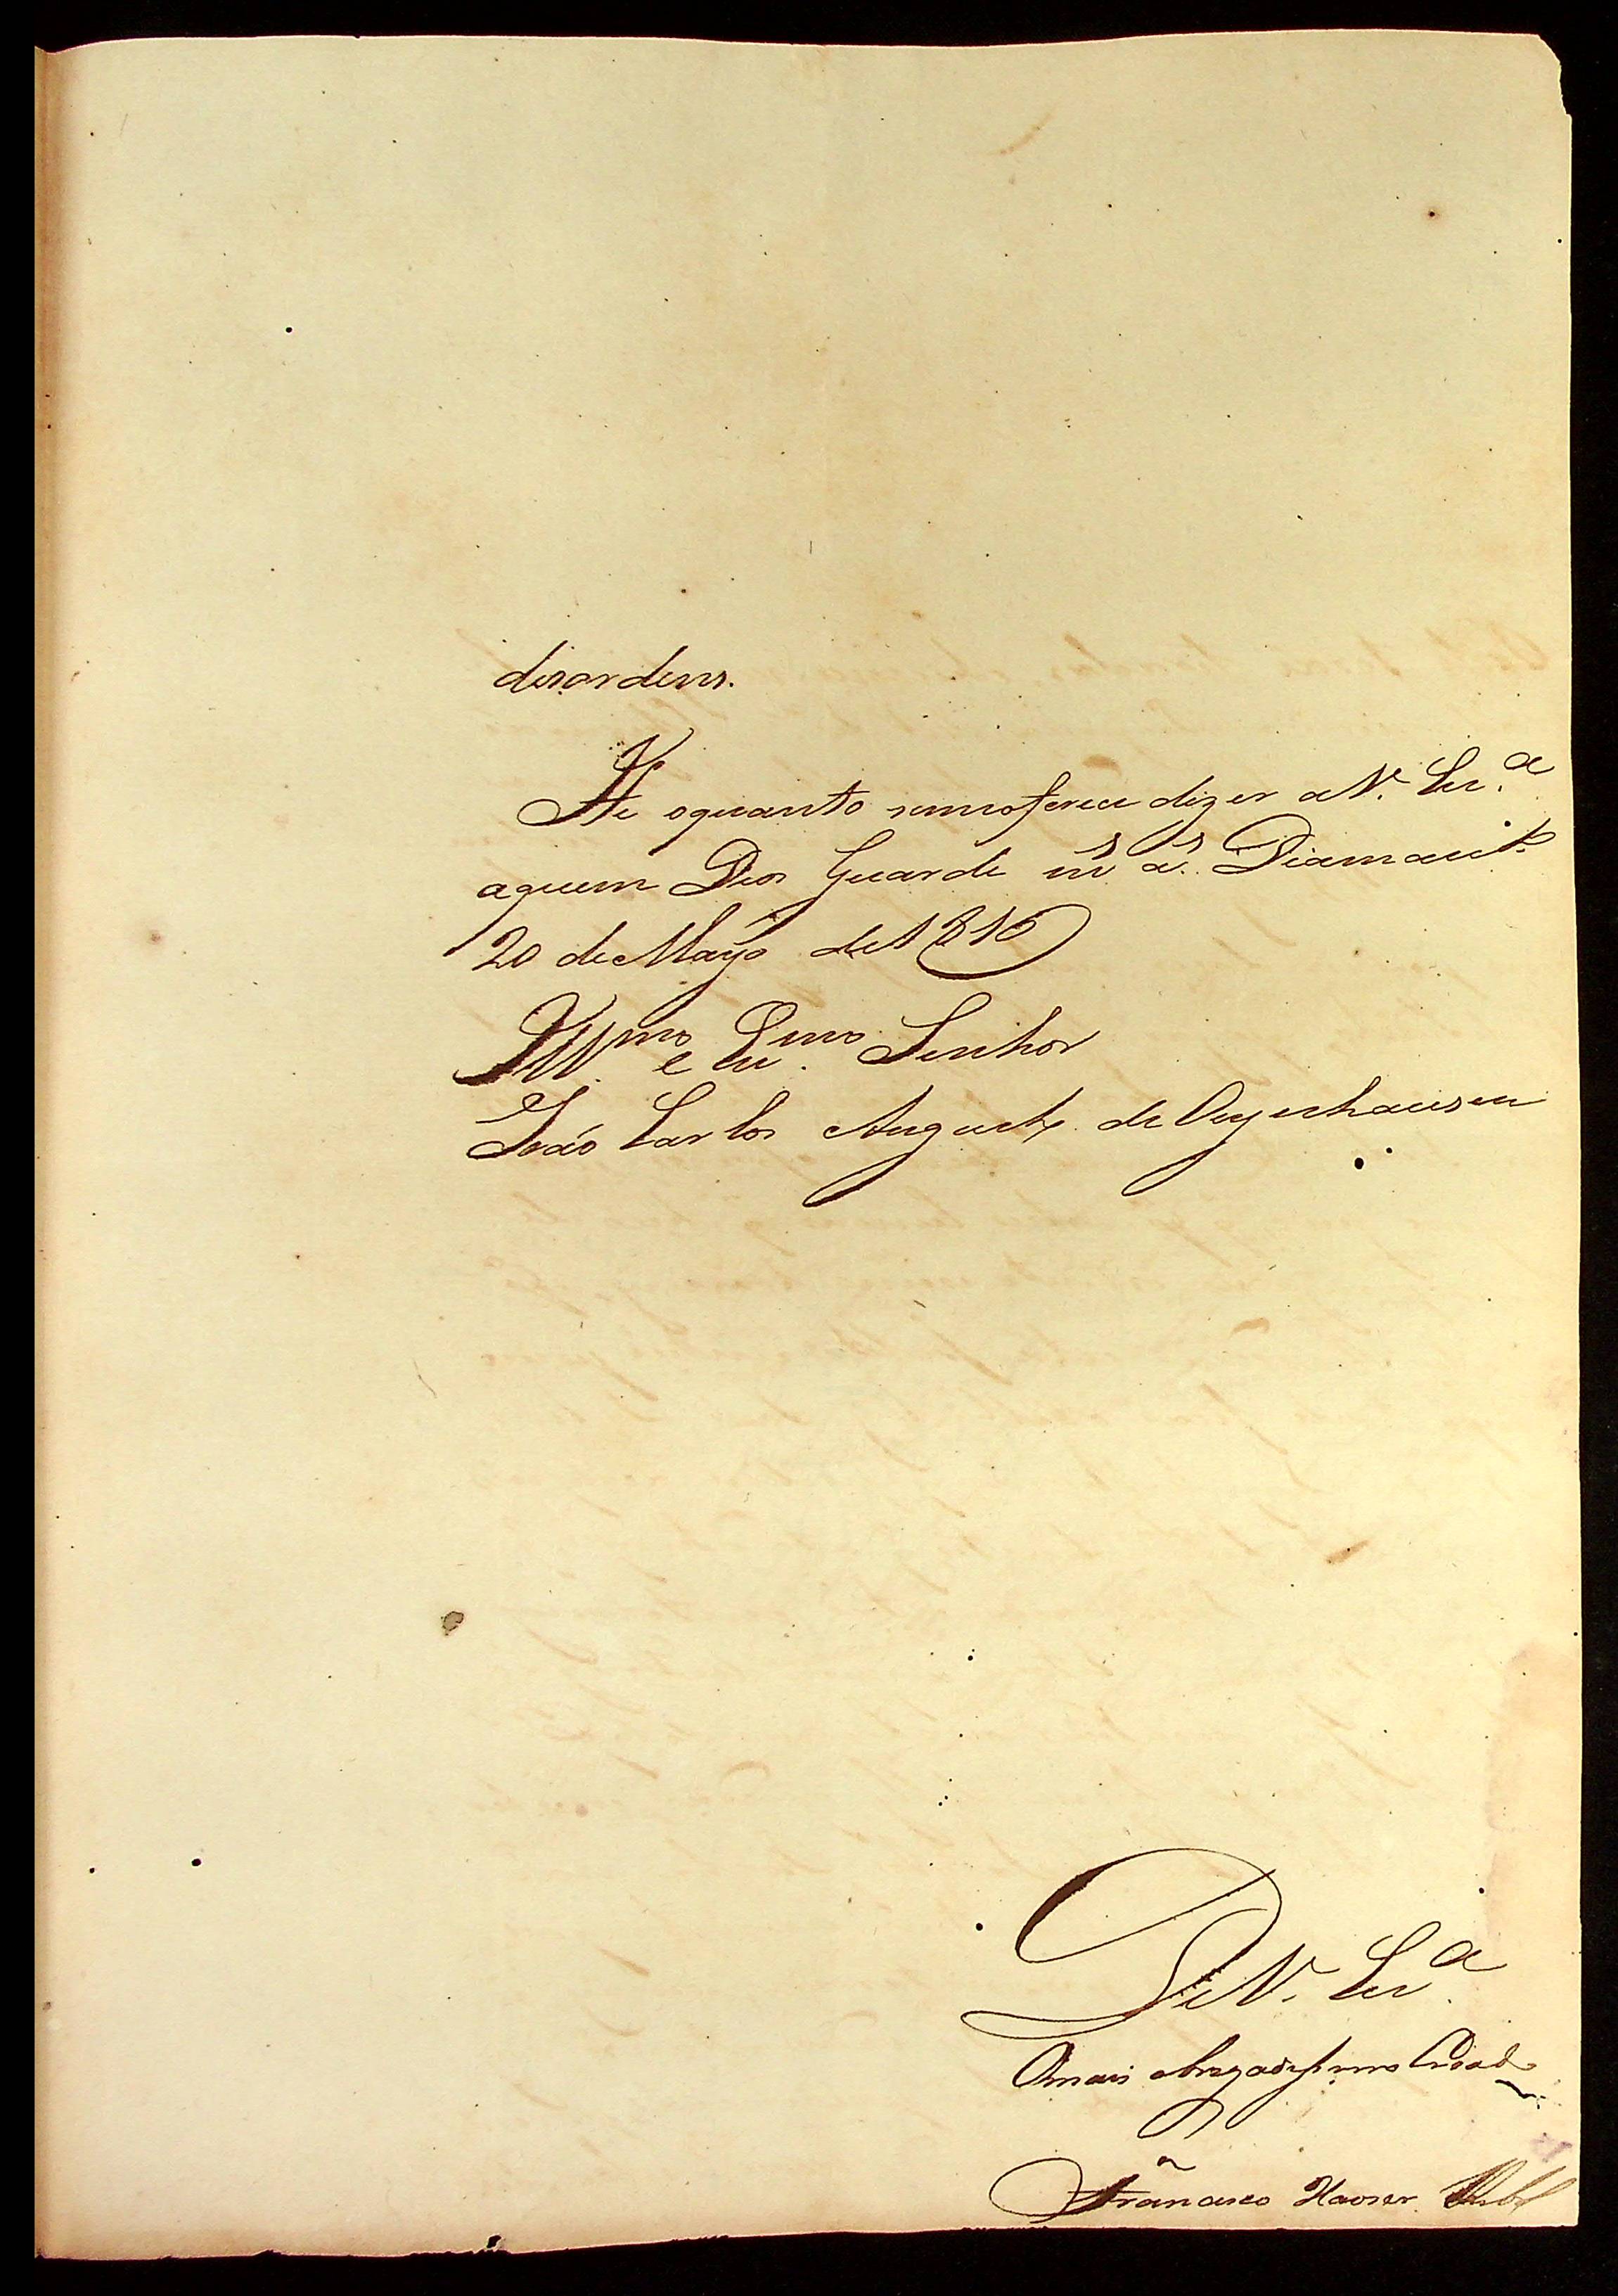 dizordens.
He oquanto semeoferece dizer a V. Ex.ª
aquem Deos Guarde m.s a.s Diamant.º
20 de Mayo de 1816
Ill.mo e Ex.mo Senhor
João Carlos Augusto de Oeynhausen
De V. Ex.ª
Omais obrigadissimo Criado
Francisco Xavier